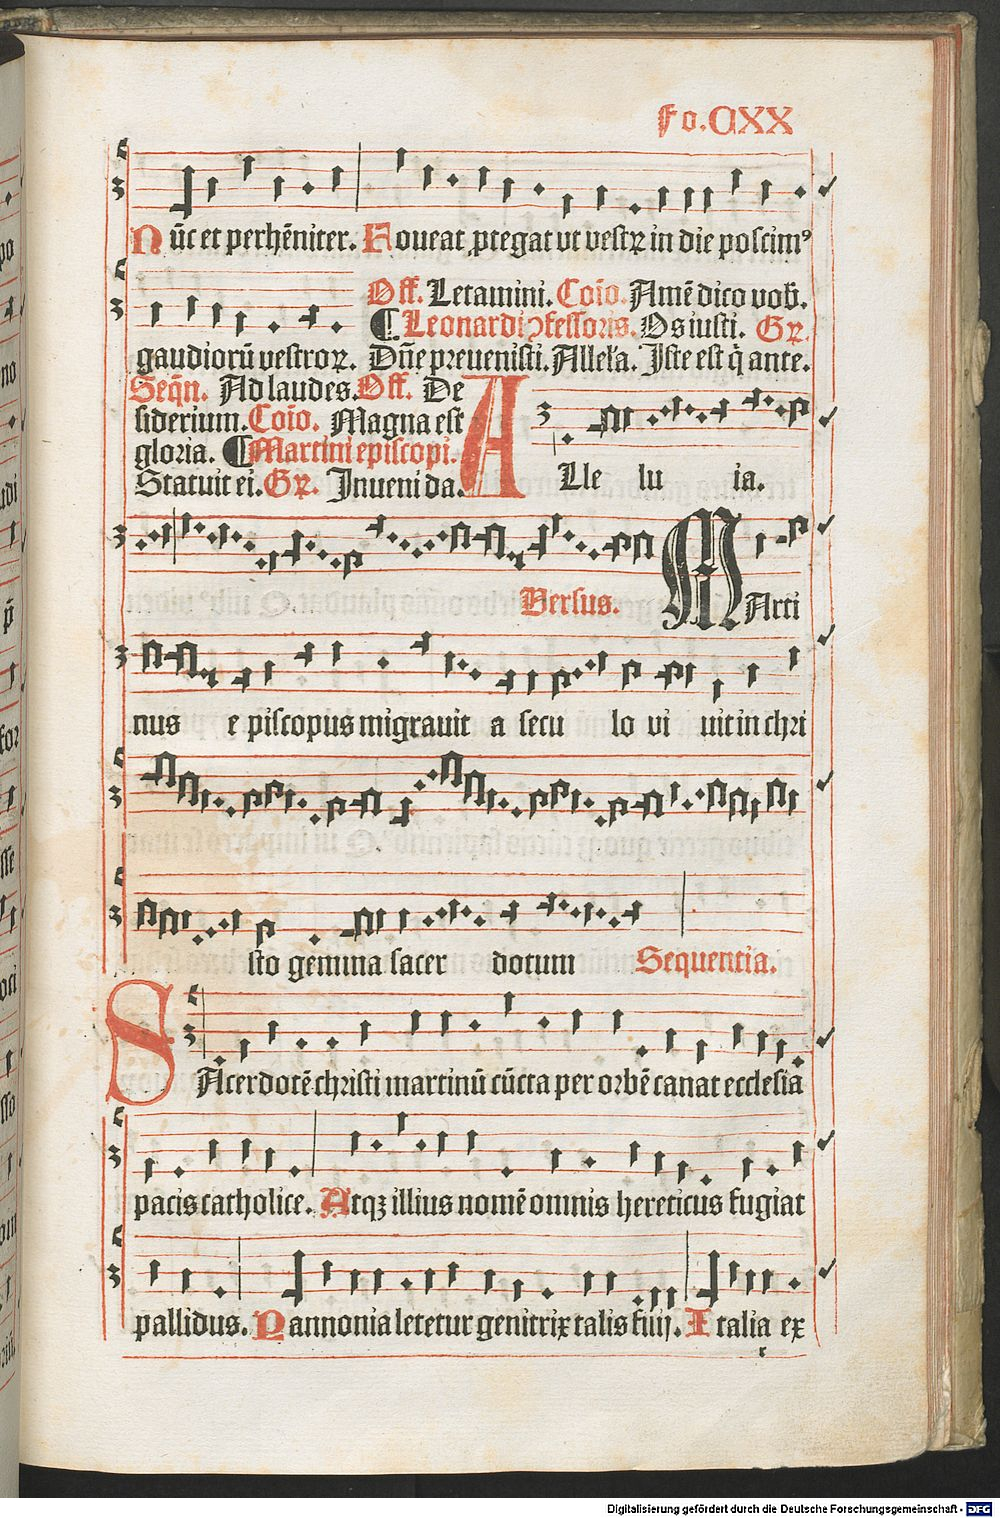 Fo. CXX
Nūc et perhēniter. Foueat ꝓtegat vt vestrꝝ in die poscimꝰ
Off. Letamini. Coīo. Amē dico vob.
¶ Leonardi ꝯfessoris. Os iusti. Gꝛ.
gaudiorū vestroꝝ. Dn̄e preuenisti. Allel'a. Iste est q̄ ante.
Seqn̄. Ad laudes. Off. De
siderium. Coīo. Magna est
gloria. ¶ Martini episcopi.
Statuit ei. Gꝛ. Inueni da.
ALle lu ia.
Versus. MArti
nus e piscopus migrauit a secu lo vi uit in chri
sto gemma sacer dotum Sequentia.
SAcerdotē christi martinū cūcta per orbē canat ecclesia
pacis catholice. Atqꝫ illius nomē omnis hereticus fugiat
pallidus. Pannonia letetur genitrix talis filij. Italia ex
r
Digitalisierung gefördert durch die Deutsche Forschungsgemeinschaft - DFG